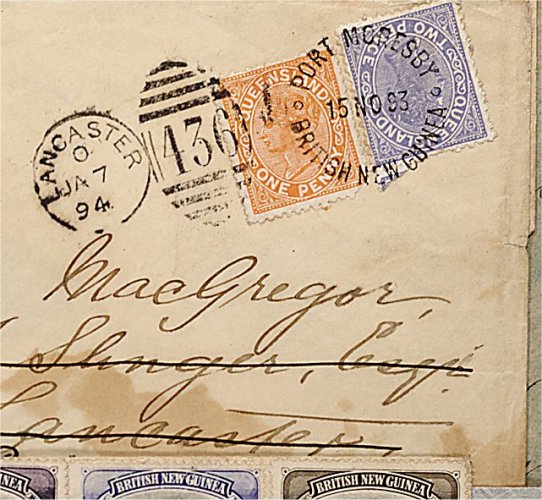 QUEENSLAND
ONE PENNY
TWO PENCE
QUEENSLAND
PORT MORESBY
15 NO 93
BRITISH NEW GUINEA
LANCASTER
O
JA 7
94
436
MacGregor,
Slinger, Esqr.
Lancaster,
BRITISH NEW GUINEA
BRITISH NEW GUINEA